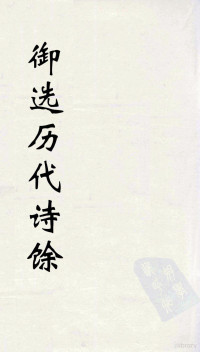 御选历代诗馀